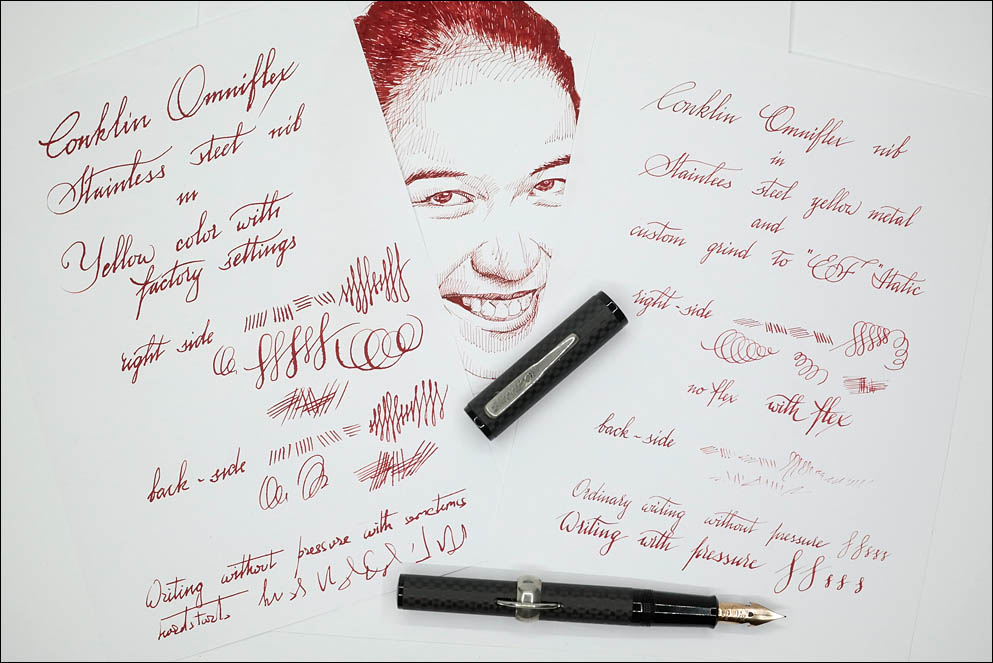 Conklin Omniflex
Stainless steel nib
in
Yellow color with
factory settings
right side
back-side
Writing without pressure with sometimes
hardstarts
Conklin Omniflex nib
in
Stainlees steel yellow metal
and
custom grind to "EF" "Italic
right-side
no flex with flex
back-side
Ordinary writing without pressure
Writing with pressure